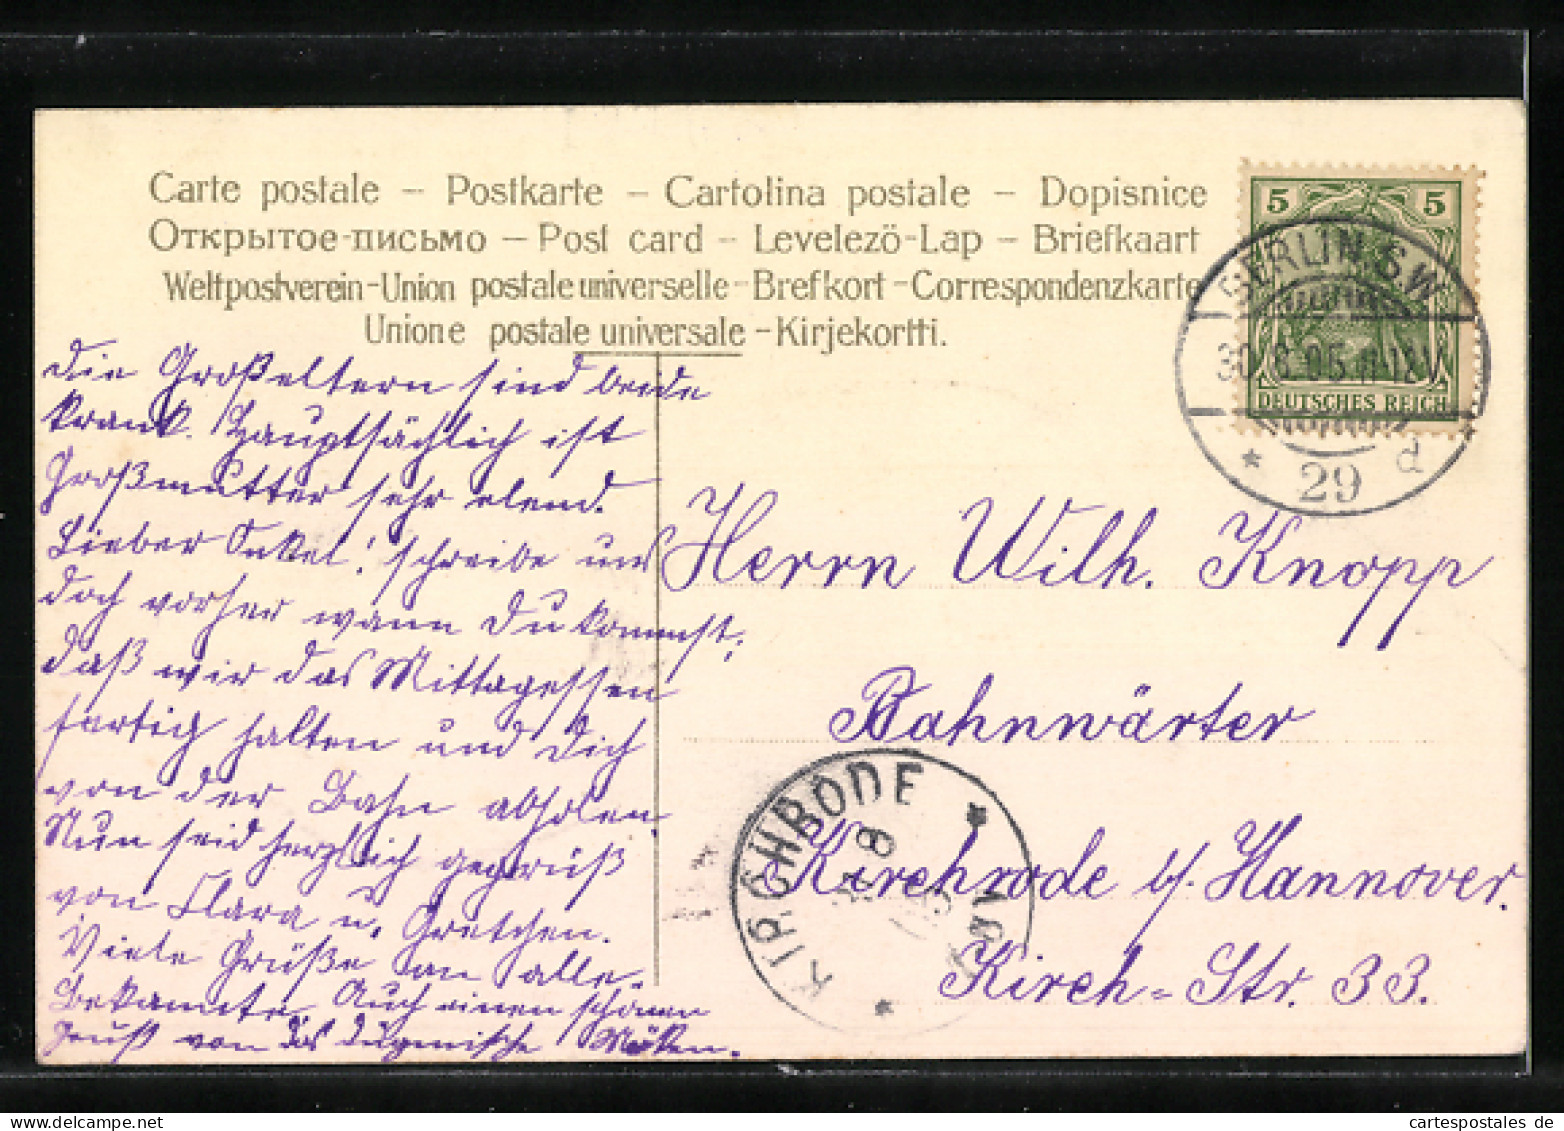 Carte postale – Postkarte – Cartolina postale – Dopisnice
Открытое-письмо – Post card – Levelezö-Lap – Briefkaart
Weltpostverein-Union postale universelle-Brefkort-Correspondenzkarte
Unione postale universale-Kirjekortti.
5 5
DEUTSCHES REICH
BERLIN. S.W.
30.8.05. 11-12V
* 29 d
die Großeltern sind beide
krank. Hauptsächlich ist
Großmutter sehr elend.
Lieber Onkel! schreibe uns
doch vorher wann Du kommst,
daß wir das Mittagessen
fertig halten und Dich
von der Bahn abholen.
Nun seid herzlich gegrüß
von Clara u. Gretchen.
Viele Grüße an alle
Bekannte. Auch einen schönen
Gruß von das
Herrn Wilh. Knopp
Bahnwärter
Kirchrode b/. Hannover.
Kirch-Str. 33.
KIRCHRODE
8
cartespostales.de